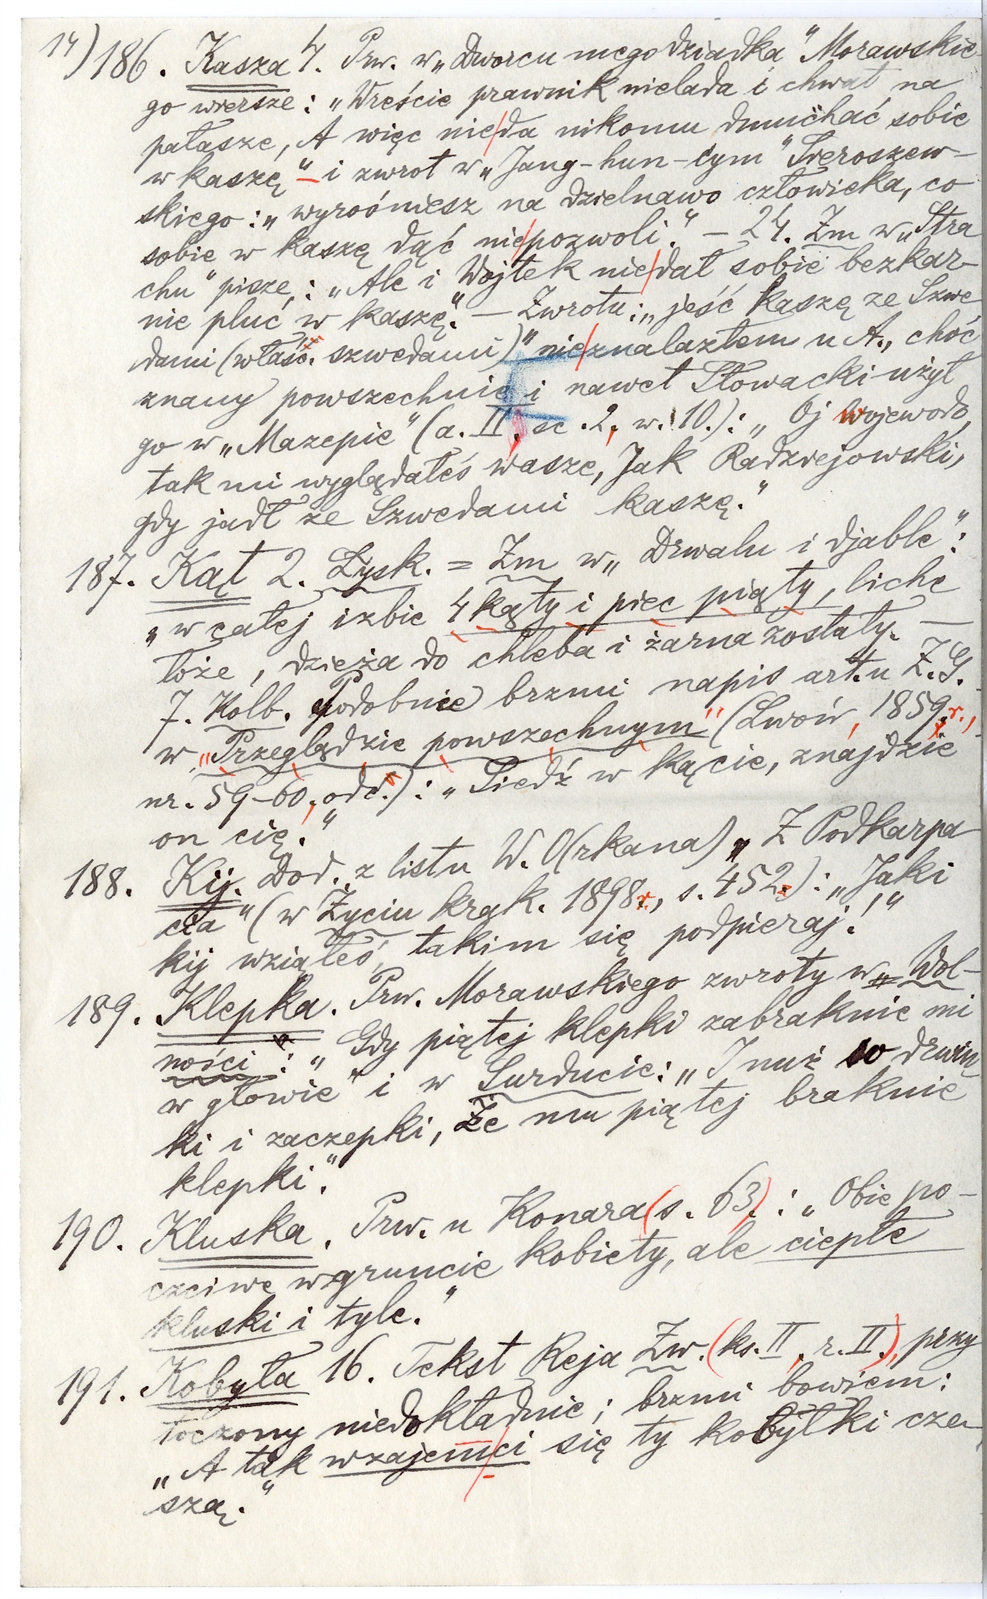 14) 186. Kasza 4. Prw. w „Dworcu mego dziadka" Morawskie-
go wiersze: „Wreście prawnik nielada i chwat na
pałasze, A więc nieda nikomu dmuchać sobie
w kaszę" i zwrot w „Jang-hun-cym" Sieroszew-
skiego: „wyrośniesz na dzielnawo człowieka, co
sobie w kaszę dąć niepozwoli." — 24. Zm w „Stra
chu" pisze: „Ale i Wojtek niedał sobie bezkar-
nie pluć w kaszę". — Zwrotu: „jeść kaszę ze Szwe
dami (właśc. szwedami)" nieznalazłem u A., choć
znany powszechnie i nawet Słowacki użył
go w „Mazepie" (a. II, sc. 2, w. 10.): „Oj wojewodo,
tak mi wyglądałeś wasze, Jak Radziejowski,
gdy jadł ze Szwedami kaszę."
187. Kąt 2. Łysk. = Zm w „Drwalu i djable":
„w całej izbie 4 kąty i piec piąty, liche
łoże, dzieża do chleba i żarna zostały. —
7. Kolb. Podobnie brzmi napis art. u Z. G.
w „Przeglądzie powszechnym" (Lwów, 1859 r.,
nr. 59-60, odc.): „Siedź w kącie, znajdzie
on cię."
188. Kij. Dod. z listu W. O(rkana) „Z Podkarpa
cia" (w Życiu krak. 1898 r., s. 452): „Jaki
kij wziąłeś, takim się podpieraj!"
189. Klepka. Prw. Morawskiego zwroty w „Wol-
ności": „Gdy piątej klepki zabraknie mi
w głowie" i w Surducie: „I nuż w drwin
ki i zaczepki, Że mu piątej braknie
klepki".
190. Kluska. Prw. u Konara (s. 63): „Obie po-
czciwe w gruncie kobiety, ale ciepłe
kluski i tyle."
191. Kobyła 16. Tekst Reja Zw. (ks. II, r. II), przy
toczony niedokładnie; brzmi bowiem:
„A tak wzajemci się ty kobyłki cze-
szą."